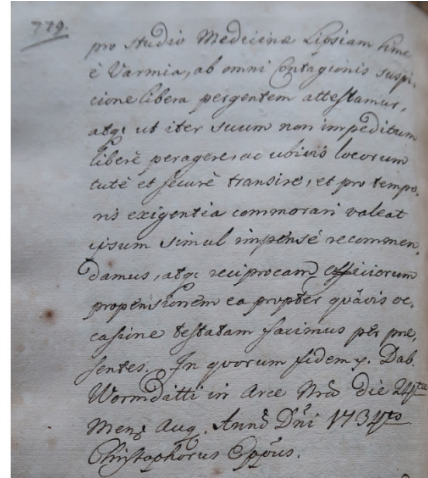 779.
pro studio Medicinæ Lipsiam hinc
è Varmia, ab omni Contagionis suspi
cione libera pergentem attestamur,
atq; ut iter suum non impeditum
liberè peragere, ac ubivis locorum
tutè et securè transire, et pro tempo
ris exigentia commorari valeat
ipsum simul impensè recommen
damus, atq; reciprocam officiorum
propensionem ea propter quâvis oc
casione testatam facimus per præ
sentes. In quorum fidem Dab.
Wormditti in Arce Nrâ die 24ta
Mens Aug. Annô Dñi 1734to
Christophorus Eppus.